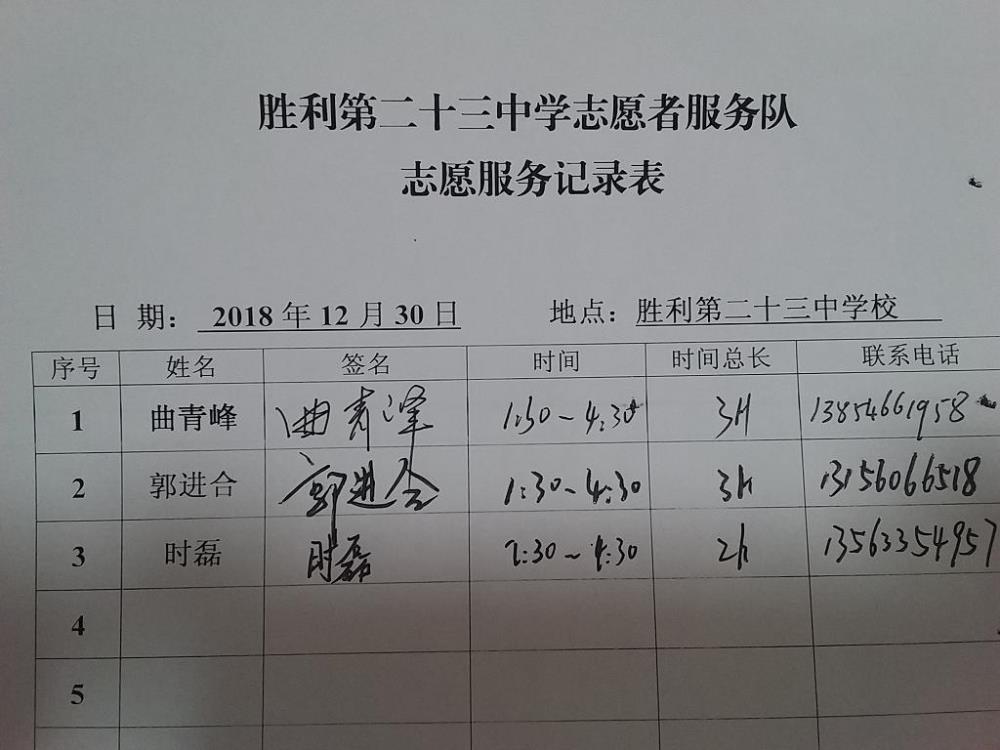 胜利第二十三中学志愿者服务队
志愿服务记录表
日 期： 2018 年 12 月 30 日 地点：胜利第二十三中学校
序号 姓名 签名 时间 时间总长 联系电话
1 曲青峰 曲青峰 1:30~4:30 3H 13854661958
2 郭进合 郭进合 1:30~4:30 3H 13156066518
3 时磊 时磊 2:30~4:30 2h 13563354957
4
5